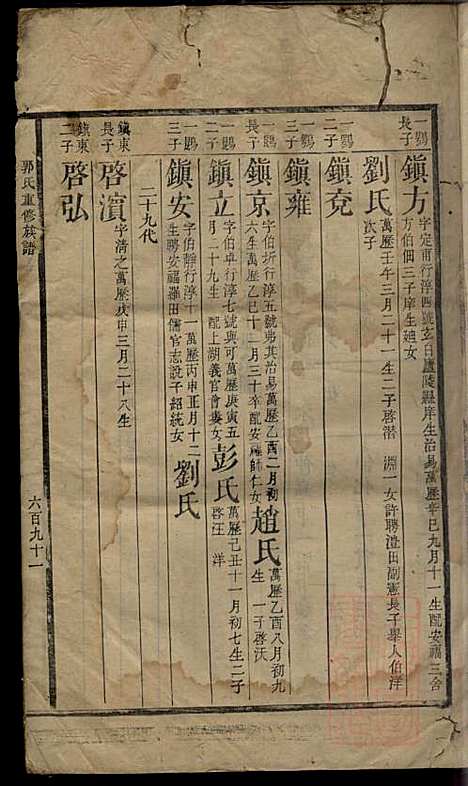 一鶚
長子
鎮方
字定甫行淳四號玄白廬陵縣庠生治易萬歷辛巳九月十一生配安福三舍
方伯佃三子庠生廷女
劉氏
萬歷壬午三月二十一生二子啓潛 淵一女許聘澧田副憲長子舉人伯洋
次子
一鶚
二子
鎮兗
一鶚
三子
鎮雍
一鶚
長子
鎮京
字伯圻行淳五號弗其治易萬歷乙酉二月初
六生萬歷乙巳十二月三十卒配安福師仁女
趙氏
萬歷乙酉八月初九
生 一子啓沃
一鶚
二子
鎮立
字伯卓行淳七號與可萬歷庚寅五
月二十九生 配上湖義官會婁女
彭氏
萬歷己丑十一月初七生二子
啓汪 洋
一鶚
三子
鎮安
字伯靜行淳十一萬歷丙申正月十二
生聘安福羅田儒官志說子紹統女
劉氏
二十九代
鎮東
長子
啓濱
字清之萬歷庚申三月二十八生
鎮東
二子
啓弘
郭氏重修族譜
六百九十一